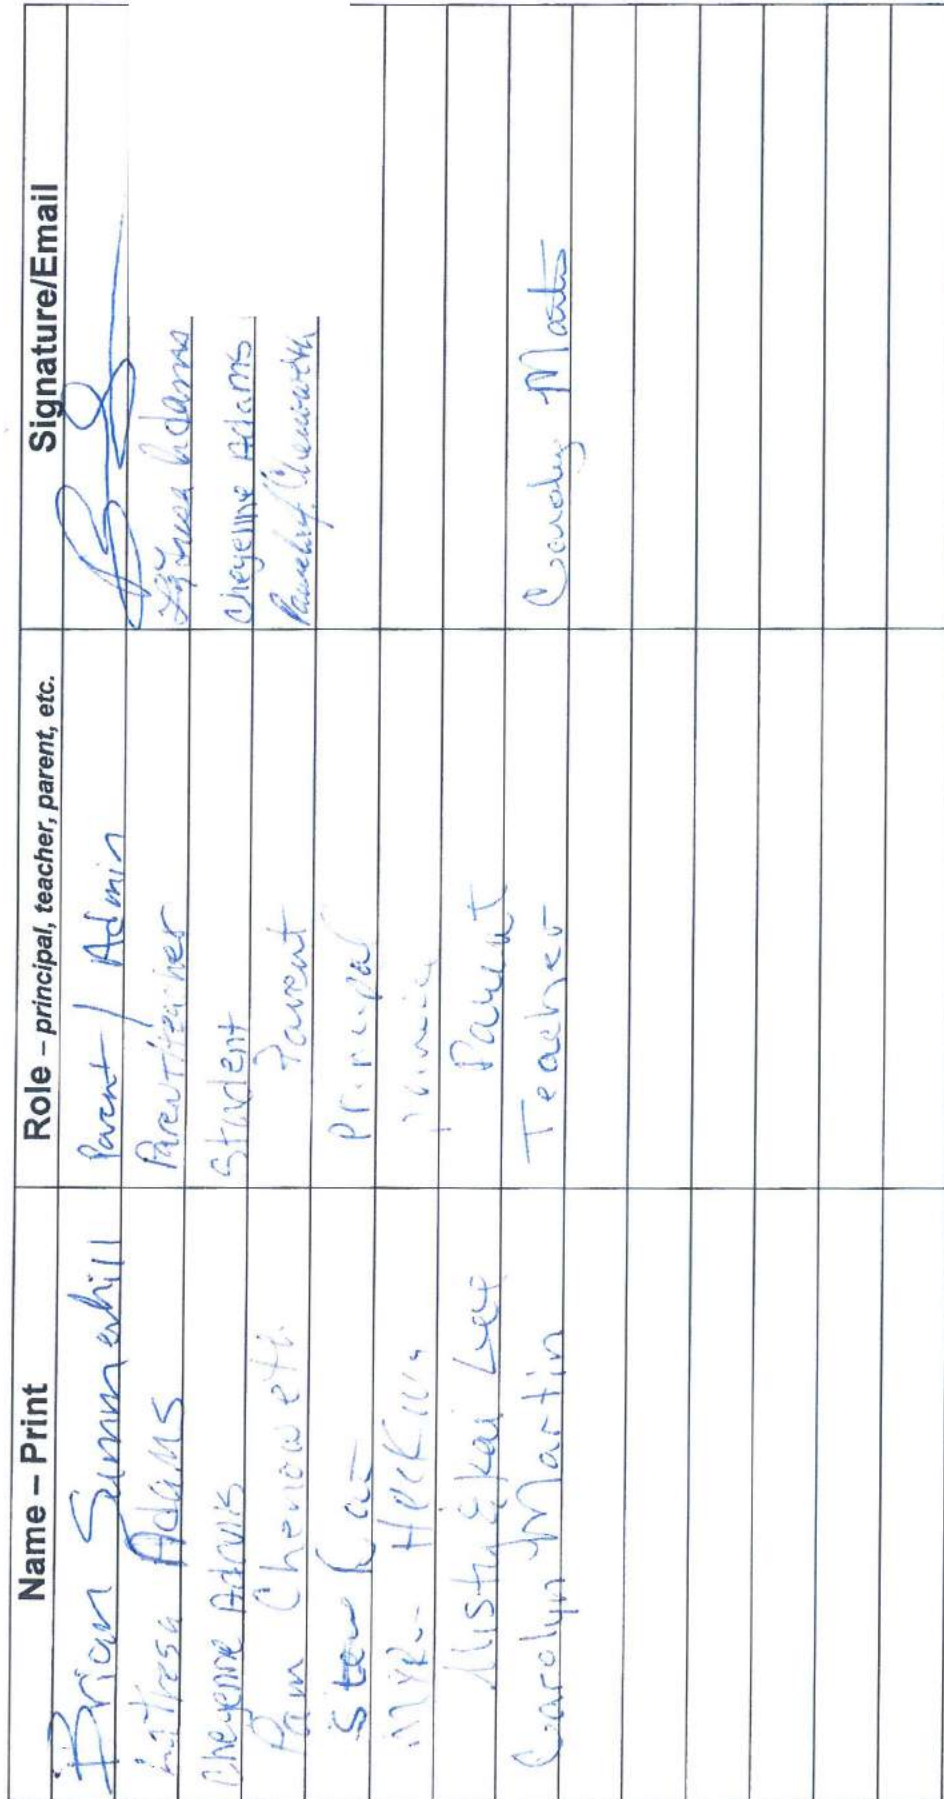 Name – Print Role – principal, teacher, parent, etc. Signature/Email
Brian Summerhill Parent / Admin
LaTresa Adams Parent/teacher LaTresa Adams
Cheyenne Adams Student Cheyenne Adams
Pam Chenoweth Parent Chenoweth
Steve Principal
Misty & Kai Lee Parent
Carolyn Martin Teacher Carolyn Martin